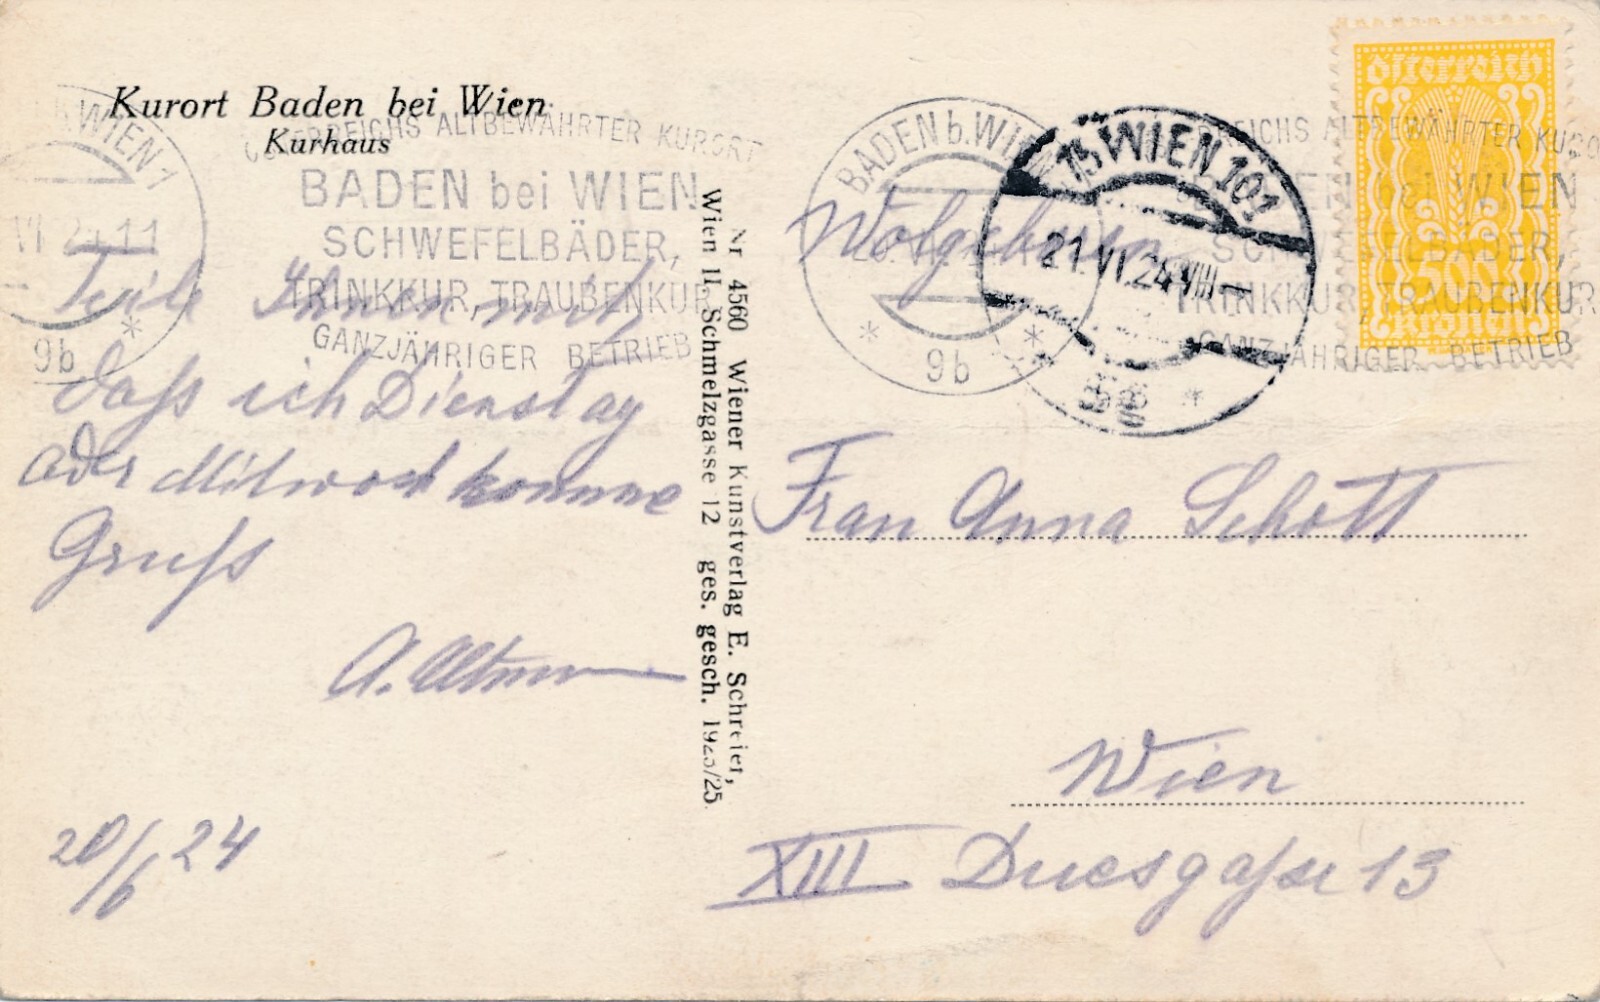 Kurort Baden bei Wien
Kurhaus
ÖSTERREICHS ALTBEWÄHRTER KURORT
BADEN bei WIEN
SCHWEFELBÄDER,
TRINKKUR, TRAUBENKUR
GANZJÄHRIGER BETRIEB
WIEN 1
VI 24 11
9b
*
Teile Ihnen mit,
dass ich Dienstag
oder Mitwoch komme
Gruss
A.
20/6 24
Nr 4560 Wiener Kunstverlag E. Schreier,
Wien II, Schmelzgasse 12 ges. gesch. 1923/25.
BADEN b. WIEN
* 9b *
15 WIEN 101
21. VI. 24 VIII
*
REICHS ALTBEWÄHRTER KURO
EN bei WIEN
SCHWEFELBÄDER,
TRINKKUR, TRAUBENKUR
GANZJÄHRIGER BETRIEB
österreich
500
kronen
Wolgeboren
Frau Anna Schott
Wien
XIII 13